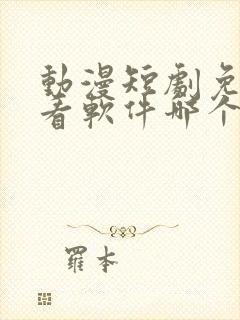 動漫短劇免
看軟件哪个
羅本